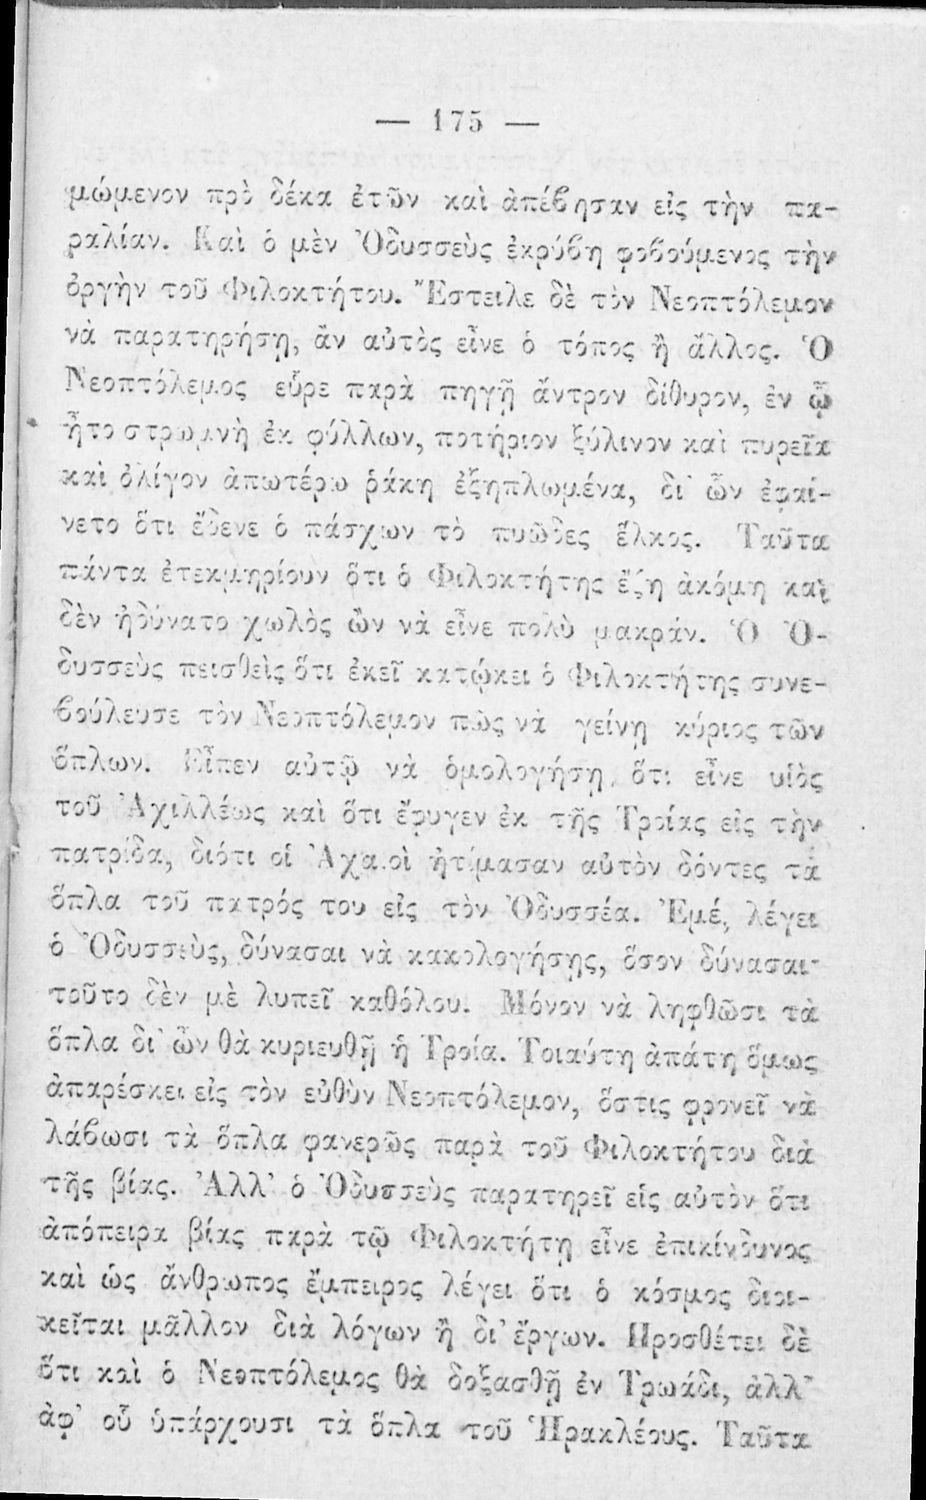 — 175 —
μώμενον πρὸ δέκα ἐτῶν καὶ ἀπέβησαν εἰς τὴν πα-
ραλίαν. Καὶ ὁ μὲν Ὀδυσσεὺς ἐκρύβη φοβούμενος τὴν
ὀργὴν τοῦ Φιλοκτήτου. Ἔστειλε δὲ τὸν Νεοπτόλεμον
νὰ παρατηρήσῃ, ἂν αὐτὸς εἶνε ὁ τόπος ἢ ἄλλος. Ὁ
Νεοπτόλεμος εὗρε παρὰ πηγῇ ἄντρον δίθυρον, ἐν ᾧ
ἦτο στρωμνὴ ἐκ φύλλων, ποτήριον ξύλινον καὶ πυρεῖα
καὶ ὀλίγον ἀπωτέρω ῥάκη ἐξηπλωμένα, δι' ὧν ἐφαί-
νετο ὅτι ἔδενε ὁ πάσχων τὸ πυῶδες ἕλκος. Ταῦτα
πάντα ἐτεκμηρίουν ὅτι ὁ Φιλοκτήτης ἔζη ἀκόμη καὶ
δὲν ἠδύνατο χωλὸς ὢν νὰ εἶνε πολὺ μακράν. Ὁ Ὀ-
δυσσεὺς πεισθεὶς ὅτι ἐκεῖ κατῴκει ὁ Φιλοκτήτης συνε-
βούλευσε τὸν Νεοπτόλεμον πῶς νὰ γείνῃ κύριος τῶν
ὅπλων. Εἶπεν αὐτῷ νὰ ὁμολογήσῃ, ὅτι εἶνε υἱὸς
τοῦ Ἀχιλλέως καὶ ὅτι ἔφυγεν ἐκ τῆς Τροίας εἰς τὴν
πατρίδα, διότι οἱ Ἀχαιοὶ ἠτίμασαν αὐτὸν δόντες τὰ
ὅπλα τοῦ πατρός του εἰς τὸν Ὀδυσσέα. Ἐμέ, λέγει
ὁ Ὀδυσσεὺς, δύνασαι νὰ κακολογήσῃς, ὅσον δύνασαι·
τοῦτο δὲν μὲ λυπεῖ καθόλου. Μόνον νὰ ληφθῶσι τὰ
ὅπλα δι' ὧν θὰ κυριευθῇ ἡ Τροία. Τοιαύτη ἀπάτη ὅμως
ἀπαρέσκει εἰς τὸν εὐθὺν Νεοπτόλεμον, ὅστις φρονεῖ νὰ
λάβωσι τὰ ὅπλα φανερῶς παρὰ τοῦ Φιλοκτήτου διὰ
τῆς βίας. Ἀλλ' ὁ Ὀδυσσεὺς παρατηρεῖ εἰς αὐτὸν ὅτι
ἀπόπειρα βίας παρὰ τῷ Φιλοκτήτῃ εἶνε ἐπικίνδυνος
καὶ ὡς ἄνθρωπος ἔμπειρος λέγει ὅτι ὁ κόσμος διοι-
κεῖται μᾶλλον διὰ λόγων ἢ δι' ἔργων. Προσθέτει δὲ
ὅτι καὶ ὁ Νεοπτόλεμος θὰ δοξασθῇ ἐν Τρωάδι, ἀλλ'
ἀφ' οὗ ὑπάρχουσι τὰ ὅπλα τοῦ Ἡρακλέους. Ταῦτα